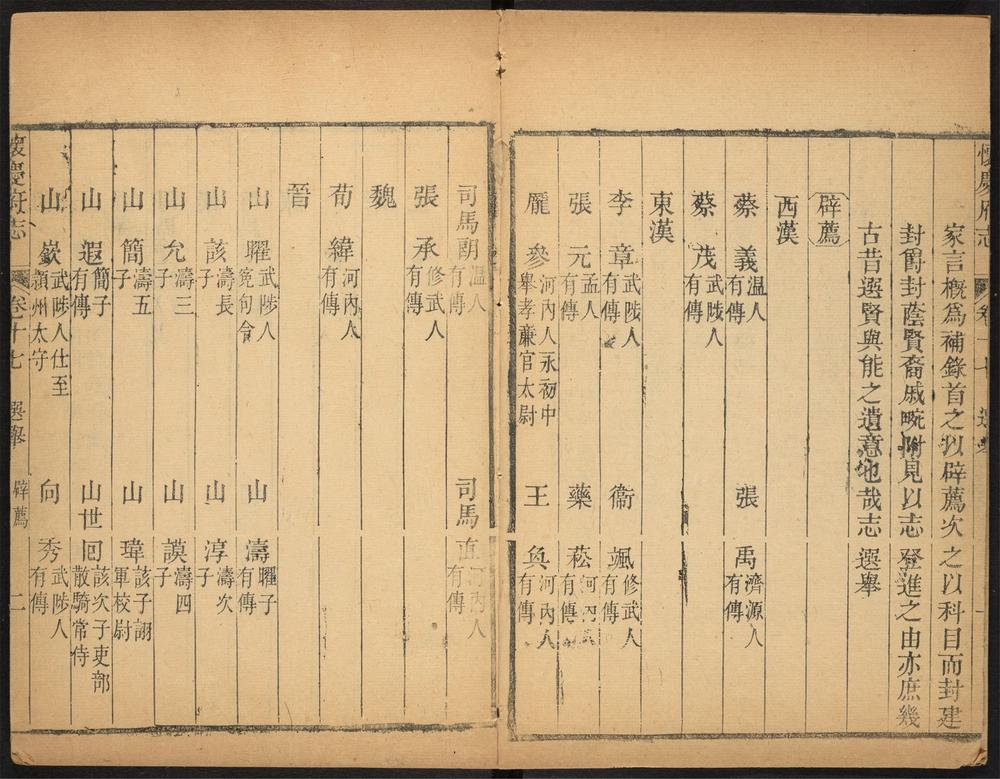 懷慶府志 卷十七 選舉
家言概爲補錄首之以辟薦次之以科目而封建
封爵封蔭賢裔戚畹附見以志登進之由亦庶幾
古昔選賢與能之遺意也哉志選舉
辟薦
西漢
蔡義 溫人有傳 張禹 濟源人有傳
蔡茂 武陟人有傳
東漢
李章 武陟人有傳 衞颯 修武人有傳
張元 孟人有傳 藥菘 河內人有傳
龐參 河內人永初中舉孝廉官太尉 王奐 河內人有傳
司馬朗 溫人有傳 司馬直 河內人有傳
張承 修武人有傳
魏
荀緯 河內人有傳
晉
山曜 武陟人宛句令 山濤 曜子有傳
山該 濤長子 山淳 濤次子
山允 濤三子 山謨 濤四子
山簡 濤五子 山瑋 該子詡軍校尉
山遐 簡子有傳 山世回 該次子吏部散騎常侍
山嶔 武陟人仕至潁州太守 向秀 武陟人有傳
懷慶府志 卷十七 選舉 辟薦 二